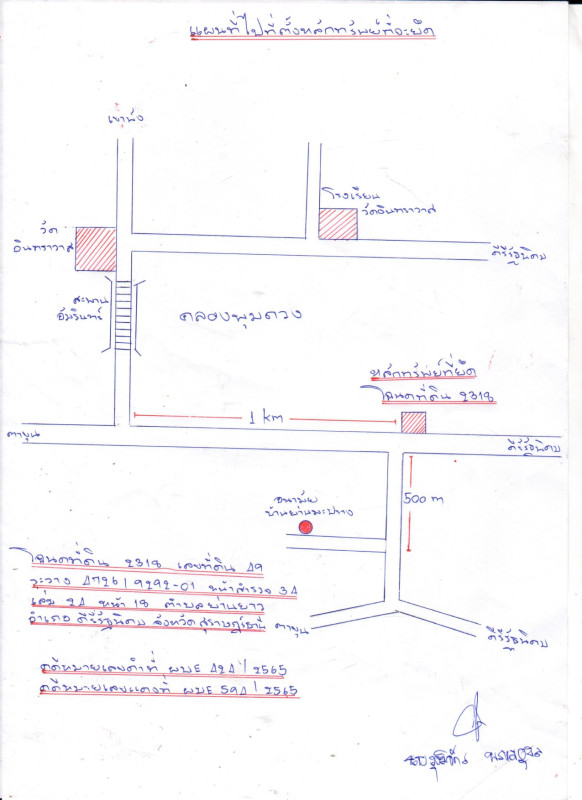 แผนที่ไปที่ตั้งหลักทรัพย์ที่จะยึด
เขาพัง
โรงเรียน
วัดอินทราวาส
วัด
อินทราวาส
คีรีรัฐนิคม
สะพาน
อัมรินทร์
คลองพุมดวง
หลักทรัพย์ที่ยึด
โฉนดที่ดิน 2318
1 km
ตาขุน
คีรีรัฐนิคม
500 m
อนามัย
บ้านย่านมะปราง
โฉนดที่ดิน 2318 เลขที่ดิน 49
ระวาง 4726 I 9292-01 หน้าสำรวจ 34
เล่ม 24 หน้า 18 ตำบลย่านยาว
อำเภอ คีรีรัฐนิคม จังหวัดสุราษฎร์ธานี
ตาขุน
คีรีรัฐนิคม
คดีหมายเลขดำที่ ผบE 424/2565
คดีหมายเลขแดงที่ ผบE 594/2565